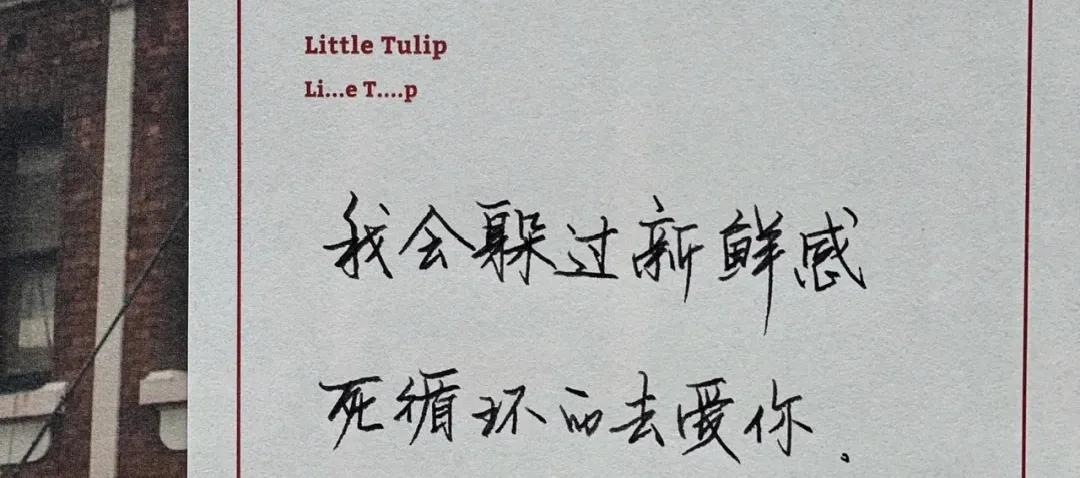 Little Tulip
Li...e T....p
我会躲过新鲜感
死循环的去爱你.